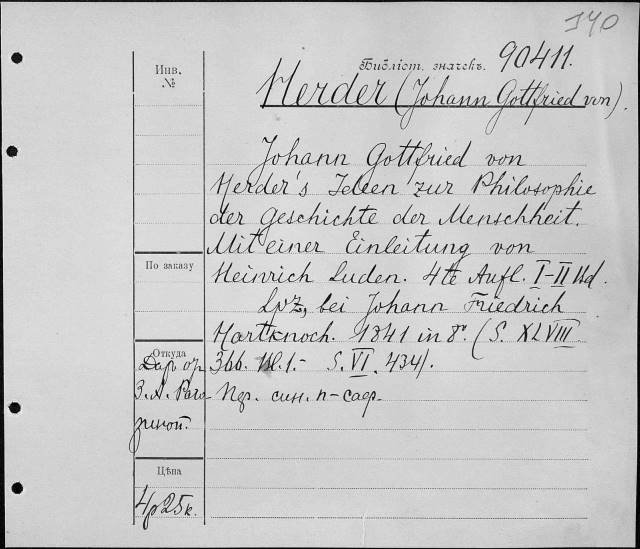 J40
Библіот. значекъ. 90411.
Инв.
№
Herder (Johann Gottfried von).
Johann Gottfried von
Herder's Ideen zur Philosophie
der Geschichte der Menschheit.
Mit einer Einleitung von
Heinrich Luden. 4te Aufl. I-II Bd.
Lpz, bei Johann Friedrich
Hartknoch. 1841 in 8°. (S. XLVIII
366. - S. VI. 434).
По заказу
Откуда
Даръ от
З. А. Раго-
зиной.
Пер. син. п-саф.
Цѣна
4р 25к.